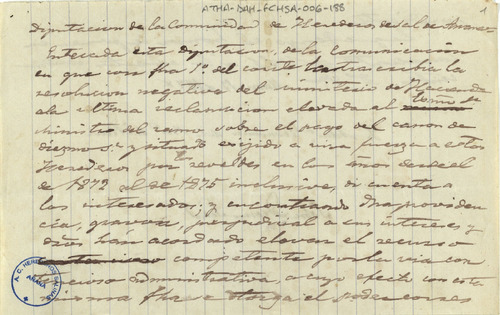 ATHA-DAH-FCHSA-006-188
1
Diputacion de la Comunidad de Herederos de Sal de Anana
Enterada esta diputacion, de la comunicacion
en que con fha 1º. del corrte trascribia la
resolucion negativa del ministerio de Hacienda
ala ultima reclamacion elevada al
ministro del ramo sobre el pago del canon de
diezmos y situado exijido a viva fuerza a estos
Herederos por los reveldes en los años desde el
de 1872 al de 1875 inclusive, dio cuenta a
los interesados; y encontrando la providen
cia, gravosa, perjudicial a sus intereses y
han acordado elevar el recurso
competente por la via con
tencioso administrativa, a cuyo efecto con esta
misma fha se otorga el poder corres
A. C. HEREDEROS SALINAS
AÑANA